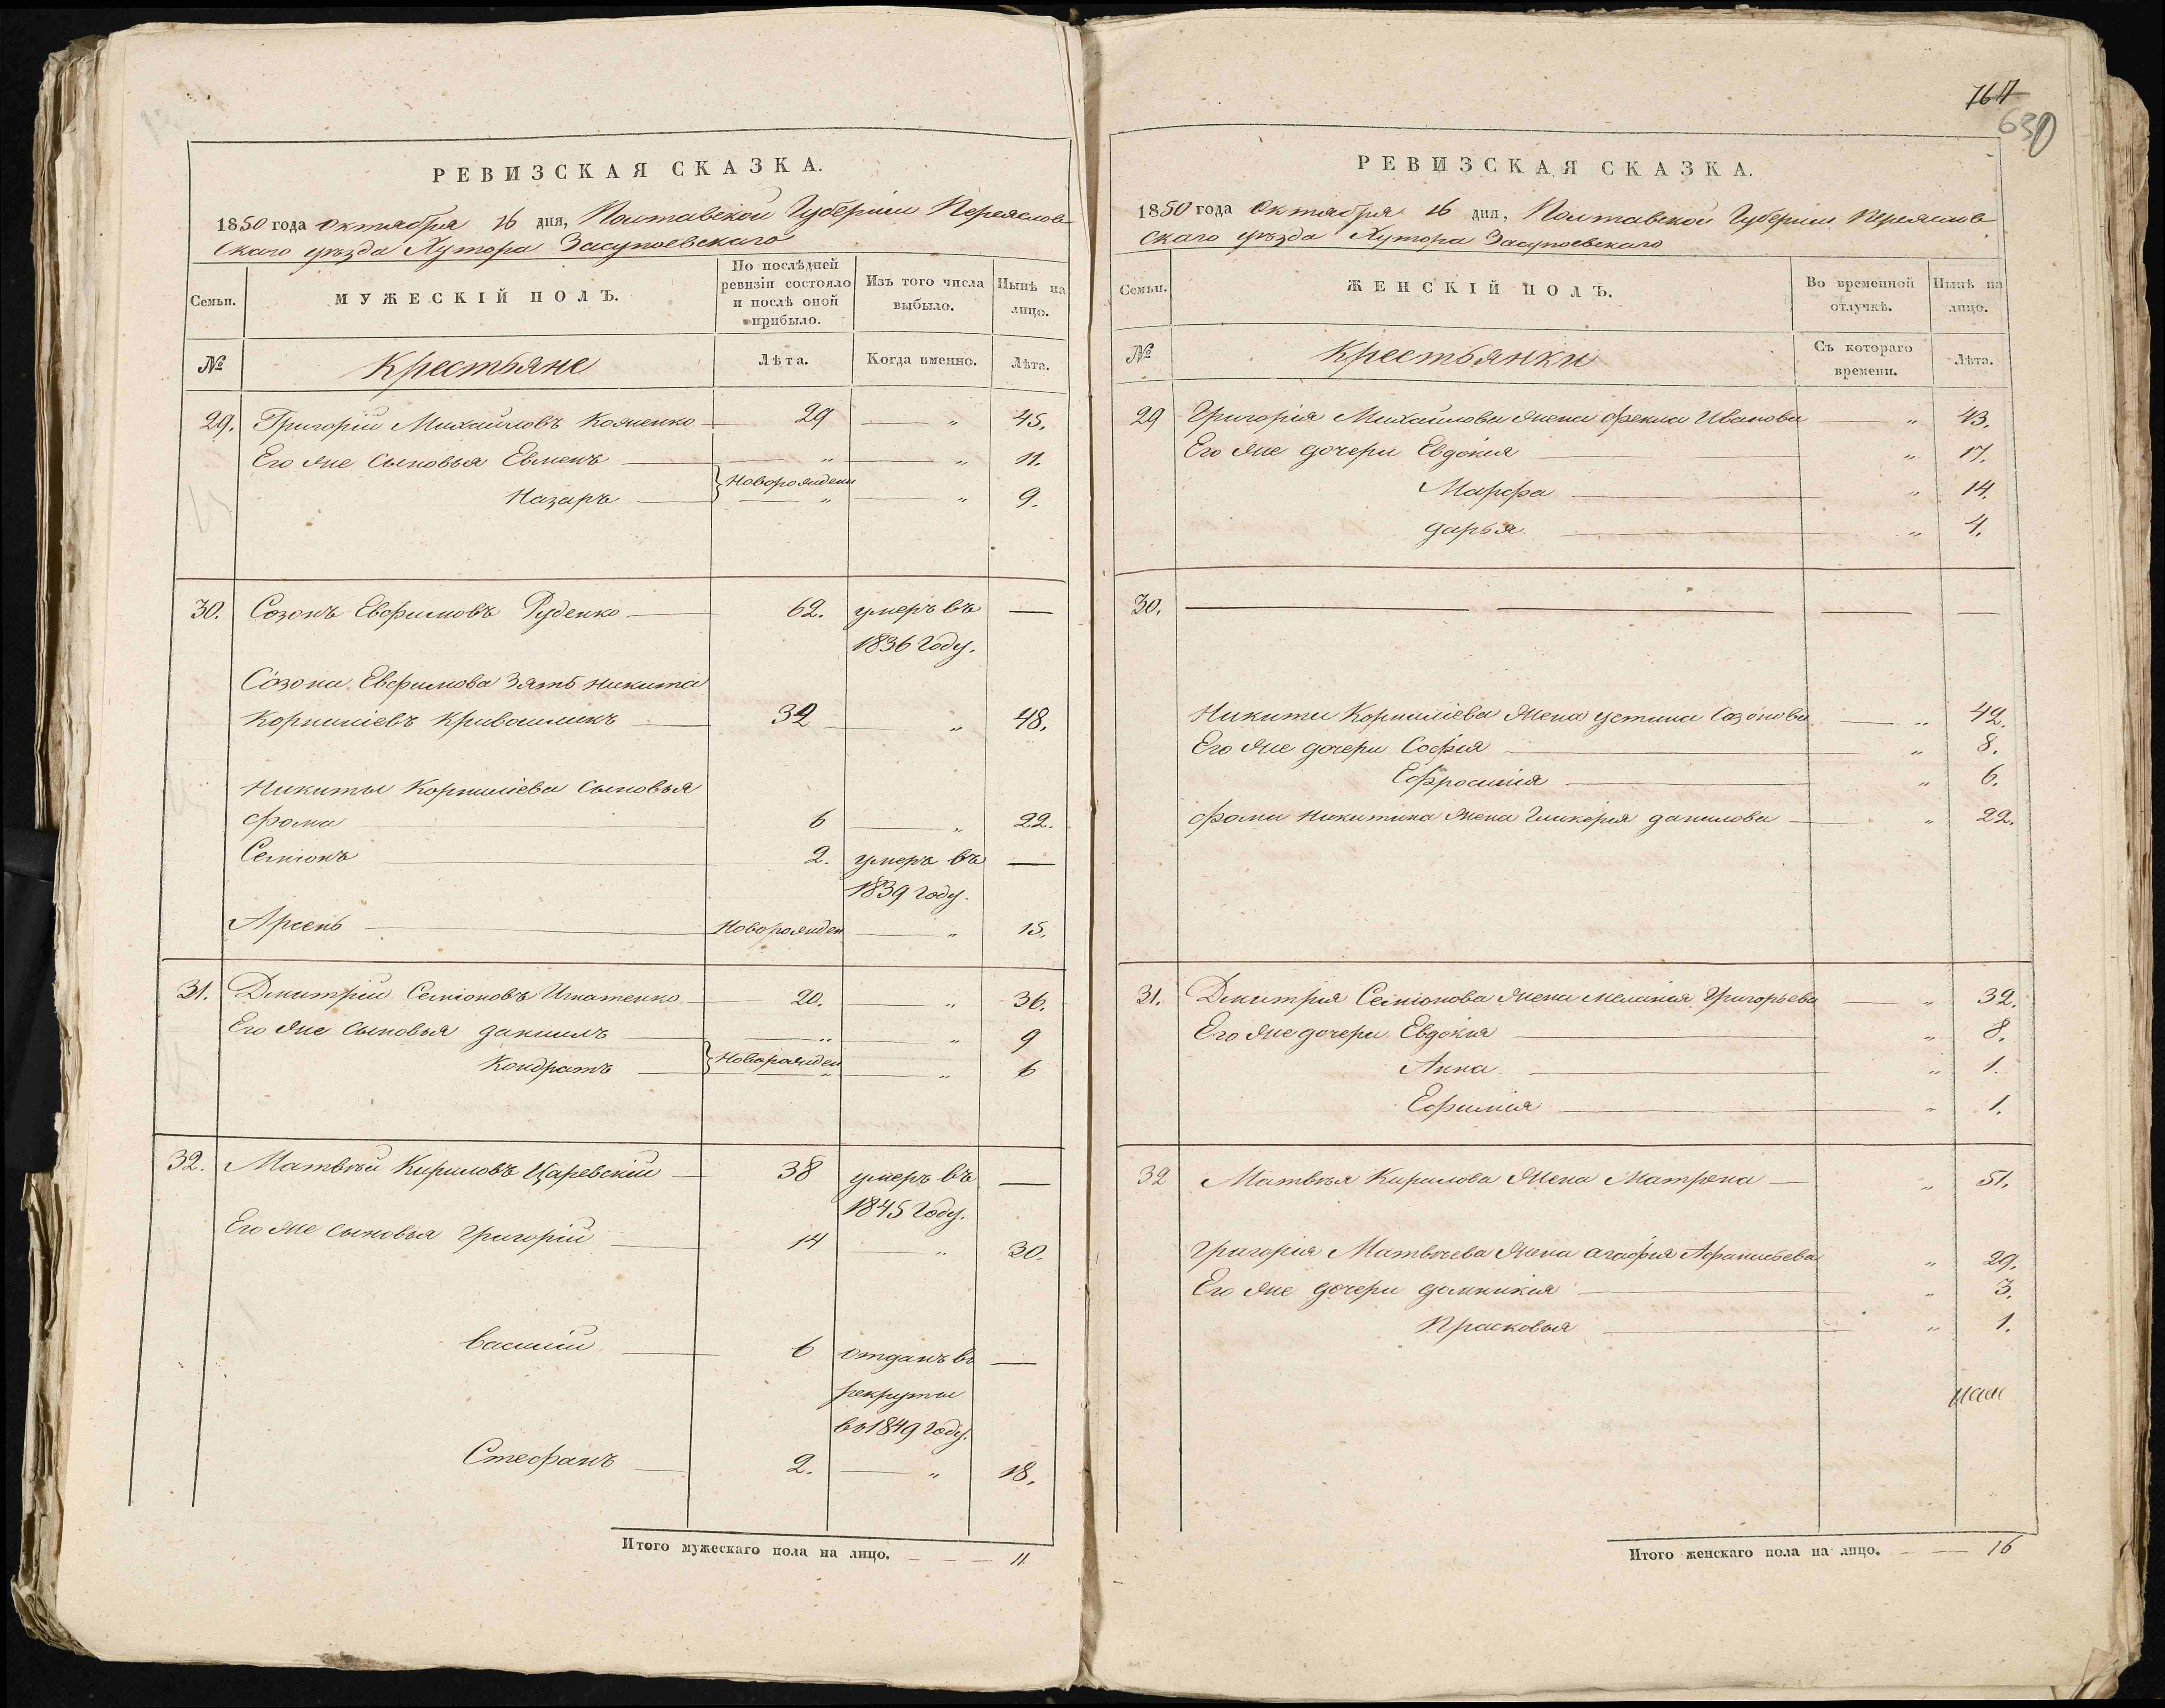 РЕВИЗСКАЯ СКАЗКА.
1850 года Октября 16 дня, Полтавской Губерніи Переяслов-
скаго уѣзда Хутора Засупоевскаго
Семьи.
МУЖЕСКІЙ ПОЛЪ.
По послѣдней ревизіи состояло и послѣ оной прибыло.
Изъ того числа выбыло.
Нынѣ на лицо.
№ Крестьяне Лѣта. Когда именно. Лѣта.
29. Григорій Михайловъ Кожненко 29 — " 45.
Его же сыновья Евменъ — " — " 11.
} Новорожденн
Назаръ — " — " 9.
30. Созонъ Евфимовъ Руденко 62. умеръ въ —
1836 Году.
Созона Евфимова Зять Никита
Корниліевъ Кривошликъ 32 — " 48.
Никиты Корниліева Сыновья
Фома 6 — " 22.
Семіонъ 2. умеръ въ —
1839 году.
Арсень Новорожден — " 15.
31. Дмитрій Семіоновъ Игнатенко 20. — " 36.
Его же сыновья Даниилъ — " — " 9
} Новорожден
Кондратъ — " — " 6
32. Матвѣй Кириловъ Царевскій 38 умеръ въ —
1845 Году.
Его же сыновья Григорій 14 " 30.
Василій 6 отданъ въ —
рекруты
въ 1849 году.
Стефанъ 2. — " 18.
Итого мужескаго пола на лицо. — — — 11
764
630
РЕВИЗСКАЯ СКАЗКА.
1850 года Октября 16 дня, Полтавской Губерніи Переяслов
скаго уѣзда Хутора Засупоевскаго
Семьи.
ЖЕНСКІЙ ПОЛЪ.
Во временной отлучкѣ.
Нынѣ на лицо.
№ Крестьянки Съ котораго времени. Лѣта.
29 Григорія Михайлова жена Фекла Иванова — " 43.
Его же дочери Евдокия — " 17.
Марфа — " 14.
Дарья — " 4.
30. — — — —
Никиты Корниліева Жена Устина Созонова — " 42.
Его же дочери Софія — " 8.
Ефросинія — " 6.
Фомы Никитина жена Гликерія Данилова — " 22.
31. Дмитрія Семіонова жена Меланія Григорьева — " 32.
Его же дочери Евдокія — " 8.
Анна — " 1.
Ефимія — " 1.
32 Матвѣя Кирилова Жена Матрена — " 51.
Григорія Матвѣева жена Агафія Афанасьева " 29.
Его же дочери Домникія — " 3.
Прасковья — " 1.
Итого женскаго пола на лицо. — — 16